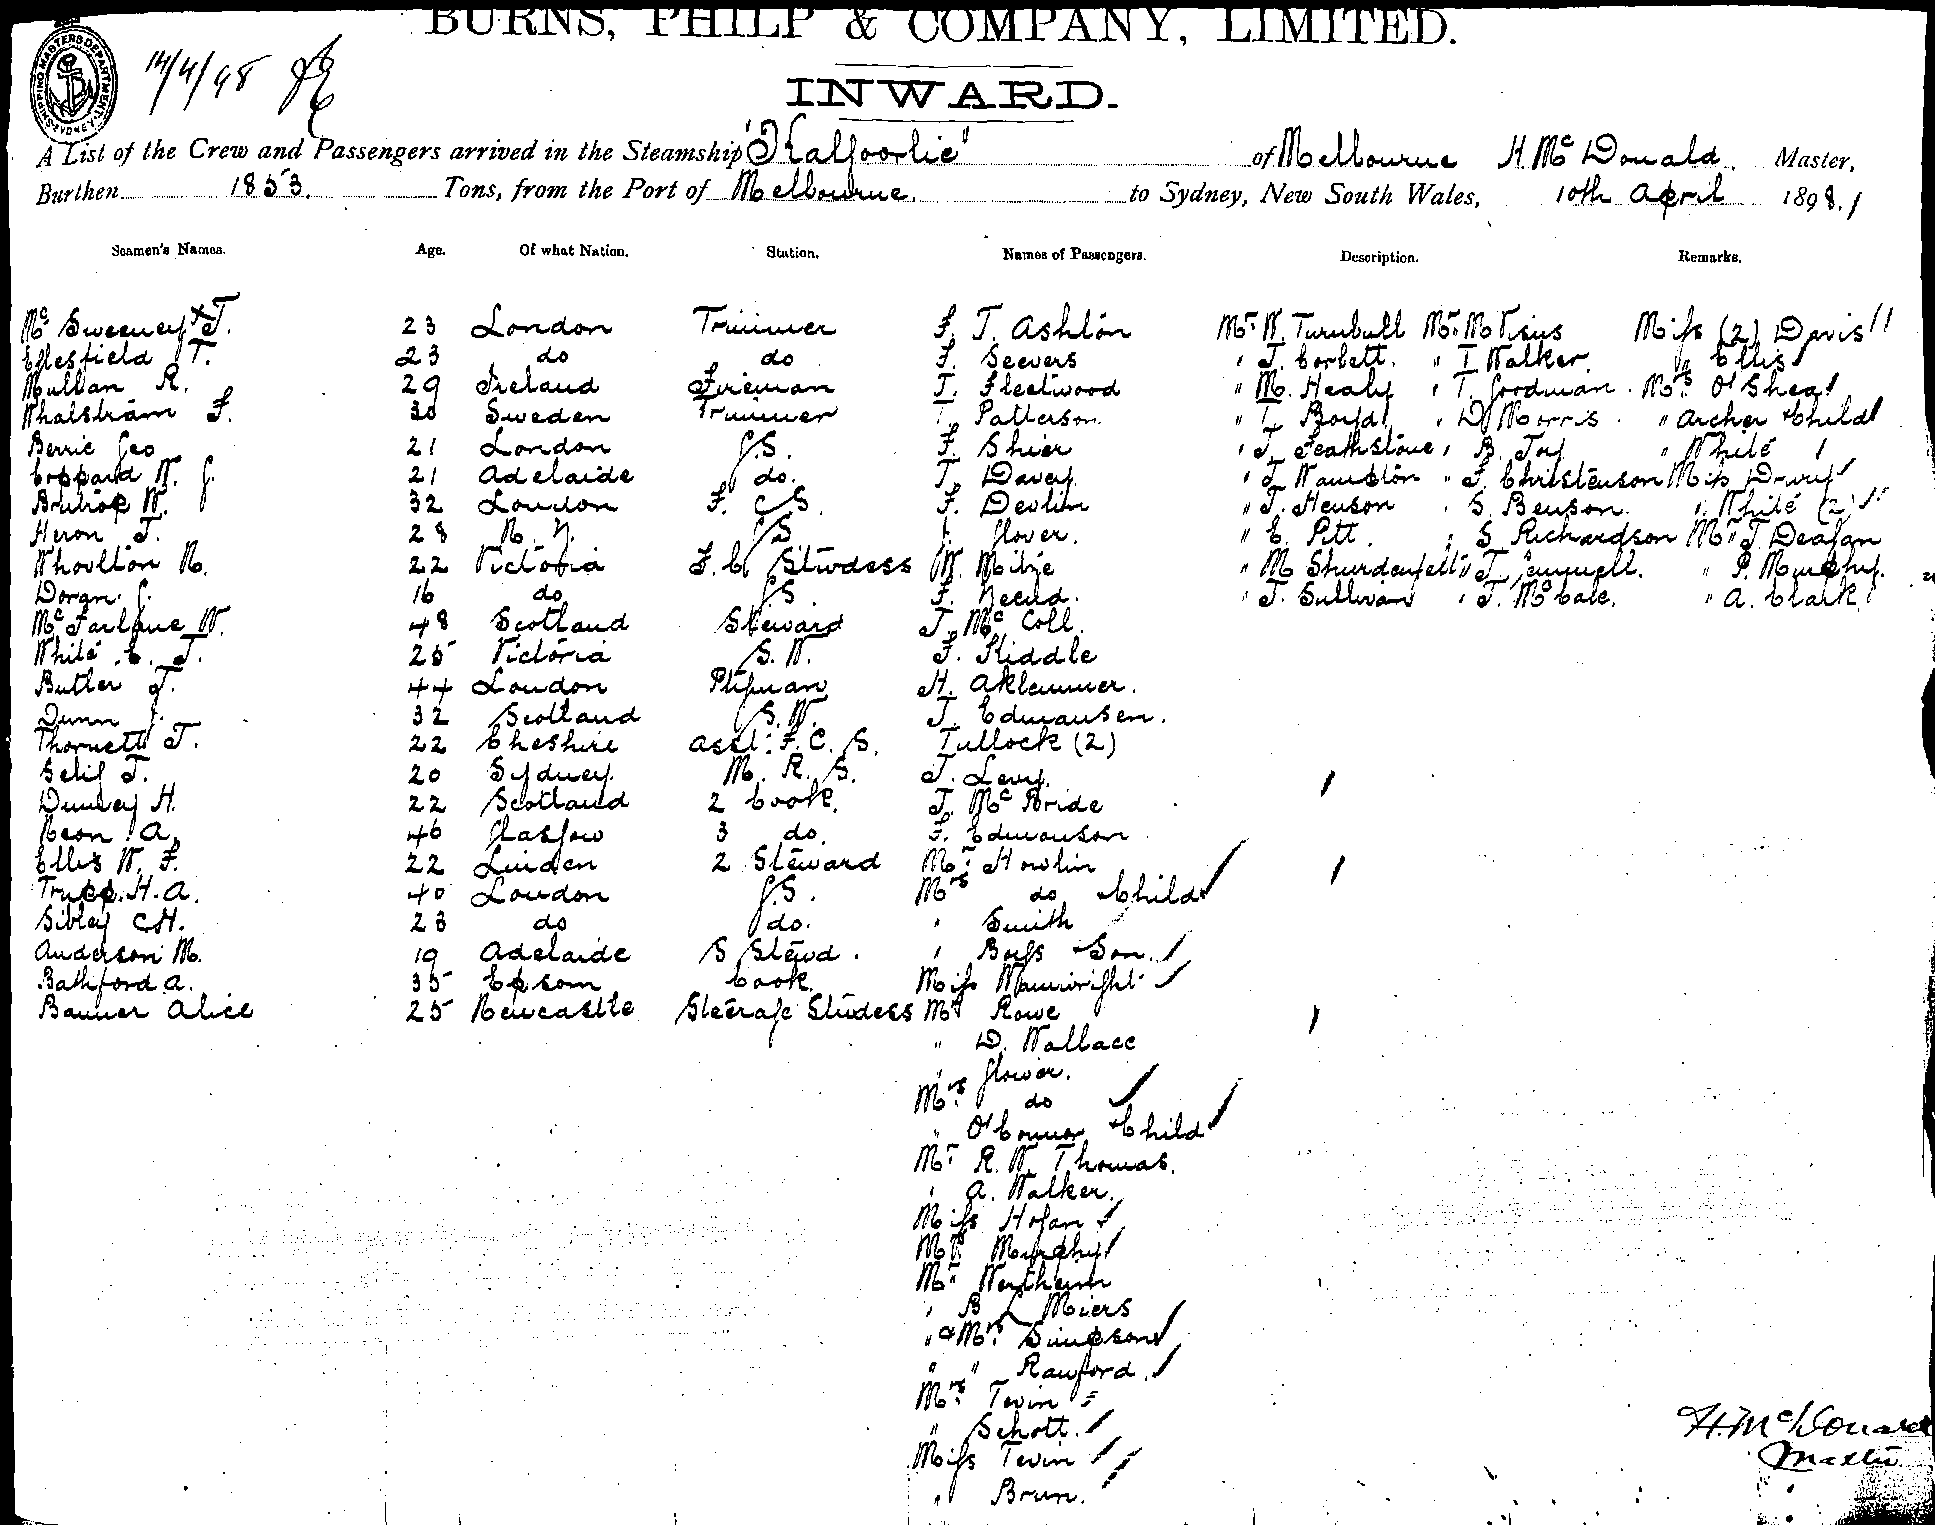 BURNS, PHILP & COMPANY, LIMITED.
SHIPPING MASTERS DEPARTMENT SYDNEY
14/4/98
INWARD.
A List of the Crew and Passengers arrived in the Steamship "Kalgoorlie" of Melbourne H. McDonald. Master,
Burthen 1853. Tons, from the Port of Melbourne. to Sydney, New South Wales, 10th April 1898.
Seamen's Names. Age. Of what Nation. Station. Names of Passengers. Description. Remarks.
McSweeney J. 23 London Trimmer F. T. Ashton Mr. W. Turnbull Mr. Miss (2) Davis
T. 23 do do F. Seevers " J. Corbett. " T Walker. " Ellis
Mullan R. 29 Ireland Fireman T. Fleetwood " M. Healy " T. Goodman. Mrs. O'Shea
Whalstram F. 30 Sweden Trimmer Patterson. " Boyd " D Morris " Archer & Child
Berrie Geo 21 London G.S. F. Shier " J. Feathstone " B. Joy " White
Coppard W. G. 21 Adelaide do. T. Davey. " J. " F. Christenson Miss Drury
W. 32 London F. C S. F. Devlin " J. Henson " S. Benson. " White (2)
Heron J. 28 N. Z. G S Glover. " E. Pitt. " S. Richardson Mr. J. Deagan
Whoolton N. 22 Victoria F. C. Stwdess W. Milne " M " J. " P. Murphy.
Doran. G. 16 do G S. F. " J. Sullivan " J. McCale. " A. Clark.
McFarlane W. 48 Scotland Steward J. McColl.
White C. J. 25 Victoria S. W. F. Kiddle
Butler J. 44 London H. Aklemmer.
Dunn J. 32 Scotland S. W. J. Edmansen.
Thornett J. 22 Cheshire Asst. F. C. S. Tullock (2)
Selig J. 20 Sydney. M. R. S. J. Levy.
H. 22 Scotland 2 Cook. J. McBride
A. 46 Glasgow 3 do. F. Edmanson
Ellis W. F. 22 2 Steward Mr. Howlin
Trupp. H. A. 40 London G.S. Mrs do & Child
Sibley C.H. 23 do do. " Smith
Anderson M. 19 Adelaide S Stewd. " Boss & Son.
Bathford A. 35 Epsom Cook. Miss Wainwright
Banner Alice 25 Newcastle Steerage Stwdess Mr Rowe
" D. Wallace
" Glover.
Mrs. do
" O'Connor & Child
Mr. R. W. Thomas.
" A. Walker.
Miss Hogan
Mrs Murphy
Mr. Wertheim
" B L Miers
" & Mrs. Simpson
" " Ranford.
Mrs. Tevin
" Schott.
Miss Tevin
" Brun.
H. McDonald
Master